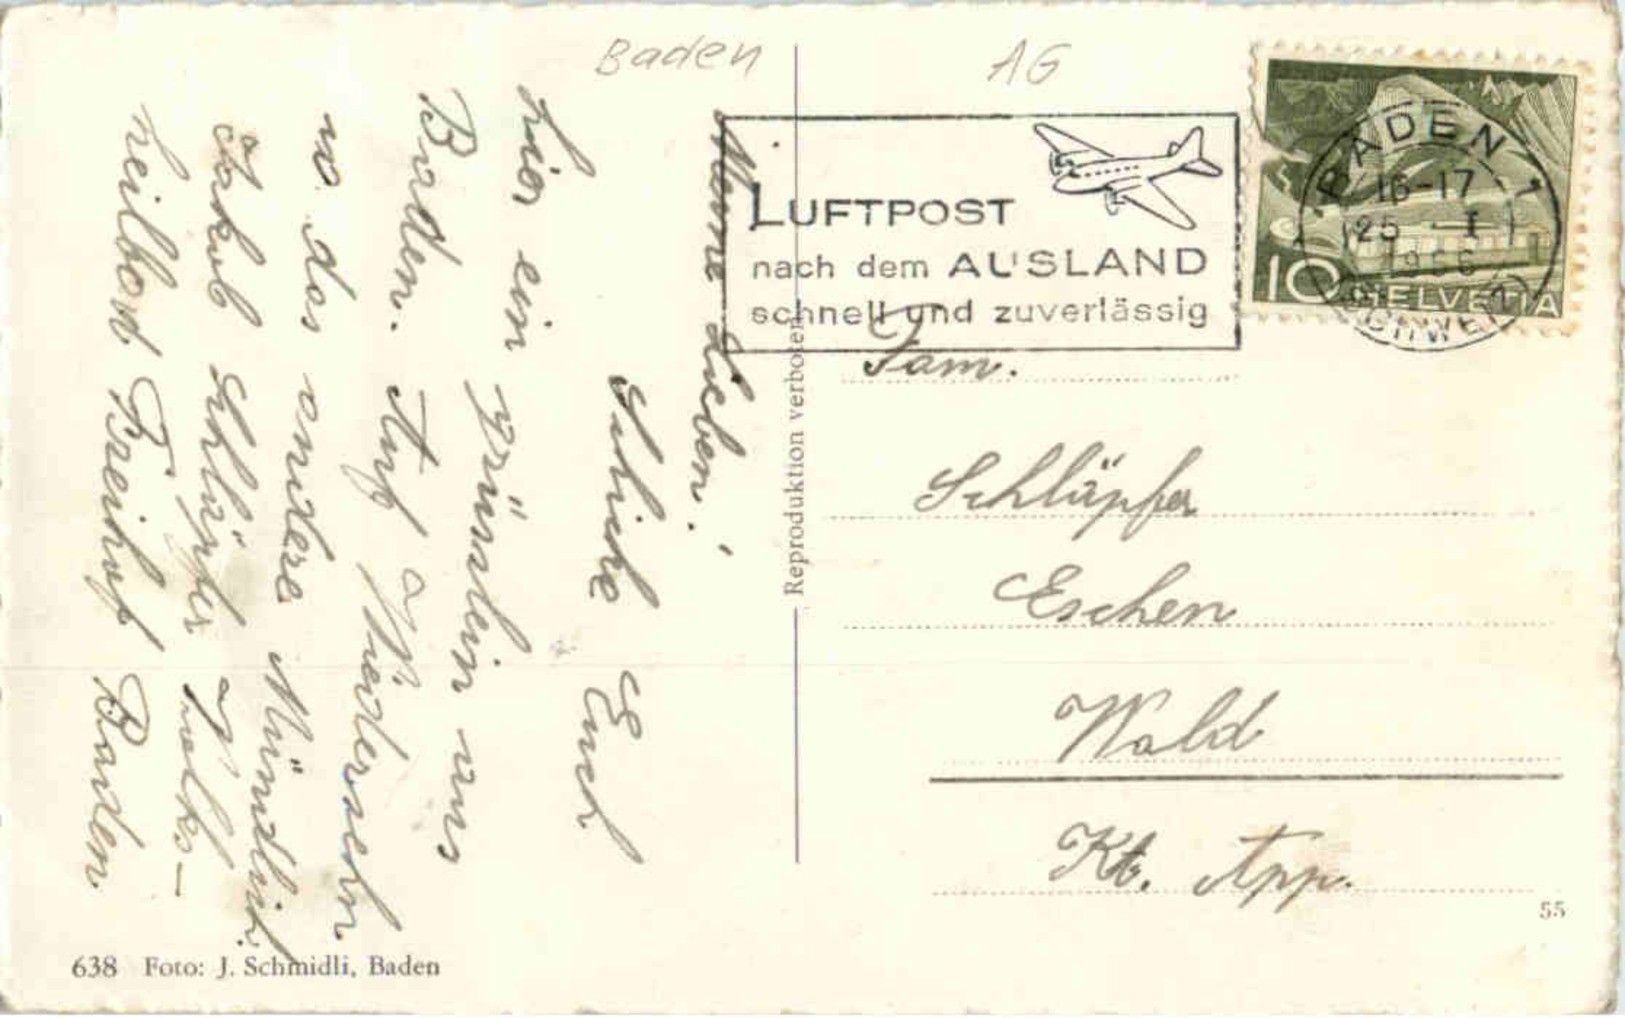 Baden
AG
LUFTPOST
nach dem AUSLAND
schnell und zuverlässig
BADEN 1
16-17
25 -I
1956
(SCHWEIZ)
10 HELVETIA
Meine Lieben!
Schicke Euch
hier ein grüsslein aus
Baden. Auf Wiedersehn
wo das andere Mündlich.
Jakob Schläpfer Volks-
heilbad Freihof Baden
Reproduktion verboten
Fam.
Schläpfer
Eschen
Wald
Kt. App.
55
638 Foto: J. Schmidli, Baden